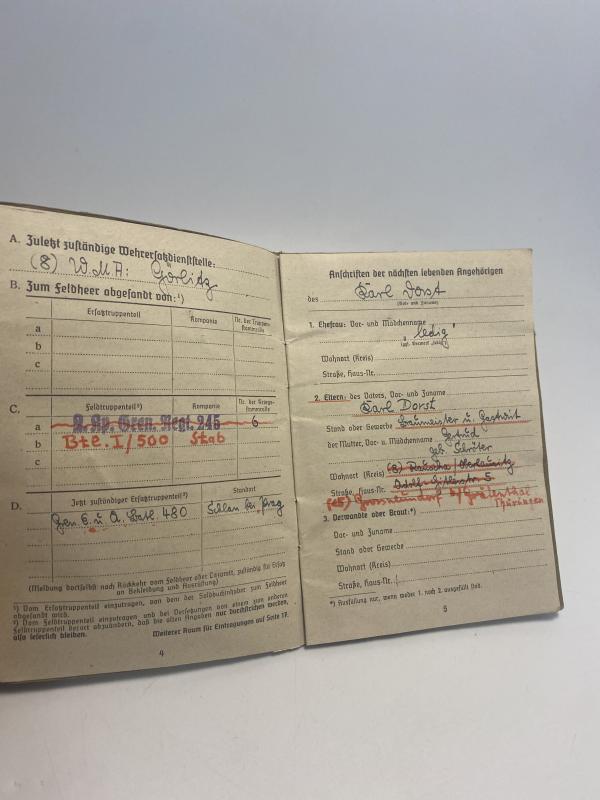 A. Zuletzt zuständige Wehrersatzdienststelle:
(8) W.M.A: Görlitz
B. Zum Feldheer abgesandt von:¹)
Ersatztruppenteil Kompanie Nr. der Truppenstammrolle
a
b
c
C.
Feldtruppenteil²) Kompanie Nr. der Kriegsstammrolle
a Gren. Regt. 245 6
b Btl. I/500 Stab
c
D.
Jetzt zuständiger Ersatztruppenteil²) Standort
Gren. E. u. A. Batl. 480 Schlan bei Prag
(Meldung dortselbst nach Rückkehr vom Feldheer oder Lazarett, zuständig für Ersatz
an Bekleidung und Ausrüstung)
¹) Vom Ersatztruppenteil einzutragen, von dem der Soldbuchinhaber zum Feldheer
abgesandt wird.
²) Vom Feldtruppenteil einzutragen und bei Versetzungen von einem zum anderen
Feldtruppenteil derart abzuändern, daß die alten Angaben nur durchstrichen werden,
also leserlich bleiben.
Weiterer Raum für Eintragungen auf Seite 17.
4
Anschriften der nächsten lebenden Angehörigen
des Karl Dorst
(Vor- und Zuname)
1. Ehefrau: Vor- und Mädchenname
„ledig“
(ggf. Vermerk „ledig“)
Wohnort (Kreis)
Straße, Haus-Nr.
2. Eltern: des Vaters, Vor- und Zuname
Karl Dorst
Stand oder Gewerbe Baumeister u. Gastwirt
der Mutter, Vor- u. Mädchenname Gertrud
geb. Schröter
Wohnort (Kreis) (8) Rauscha/Oberlausitz
Straße, Haus-Nr. Adolf-Hitlerstr. 5
(15) Grossneundorf b/Gräfenthal
Thüringen
3. Verwandte oder Braut:*)
Vor- und Zuname
Stand oder Gewerbe
Wohnort (Kreis)
Straße, Haus-Nr.
*) Ausfüllung nur, wenn weder 1. noch 2. ausgefüllt sind.
5